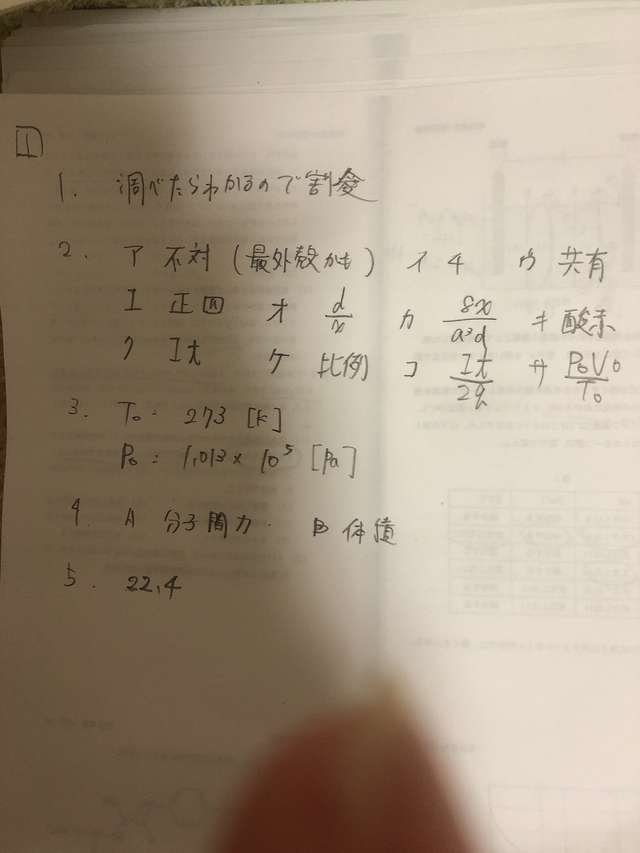 1
1. 調べたらわかるので割愛
2. ア 不対(最外殻かも) イ 4 ウ 共有
エ 正四 オ d/x カ 8x/a³d キ 酸素
ク It ケ 比例 コ It/2q サ P₀V₀/T₀
3. T₀ = 273 [K]
P₀ = 1.013 × 10⁵ [Pa]
4. A 分子間力. B 体積
5. 22.4